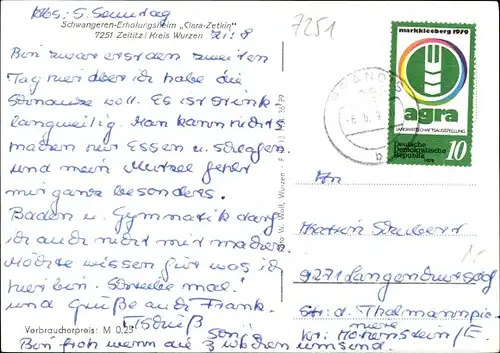 Abs: S. Sonntag
Schwangeren-Erholungsheim „Clara-Zetkin“
7251 Zeititz / Kreis Wurzen Zi: 8
Bin zwar erst den zweiten
Tag hier aber ich habe die
Schnauze voll. Es ist stink
langweilig. Man kann nichts
machen nur Essen u. schlafen.
und mein Murzel fehlt
mir ganz besonders.
Baden u. Gymnatik darf
ich auch nicht mit machen.
Möchte wissen für was ich
hier bin. Schreibe mal.
und Grüße auch Frank.
Tschüß
Soni
Bin froh wenn die 3 Wochen um sind.
Verbraucherpreis: M 0,25
7251
markkleeberg 1979
agra
LANDWIRTSCHAFTSAUSSTELLUNG
Deutsche
Demokratische
Republik
10
1979
An
Katrin Schubert
9271 Langenchursdorf
Str. d. Thälmannpio
niere
Kr: Hohenstein/E